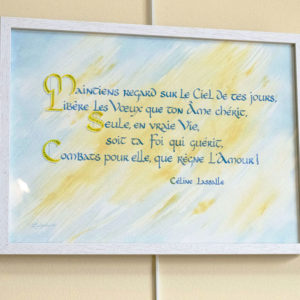 Maintiens regard sur le Ciel de tes jours,
Libère les Vœux que ton Âme chérit,
Seule, en vraie Vie,
soit ta Foi qui guérit,
Combats pour elle, que règne L'Amour !
Céline Lassalle